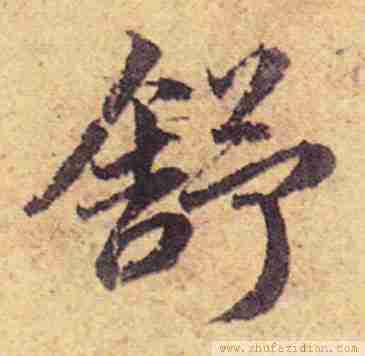 舒
www.zhufazidian.com